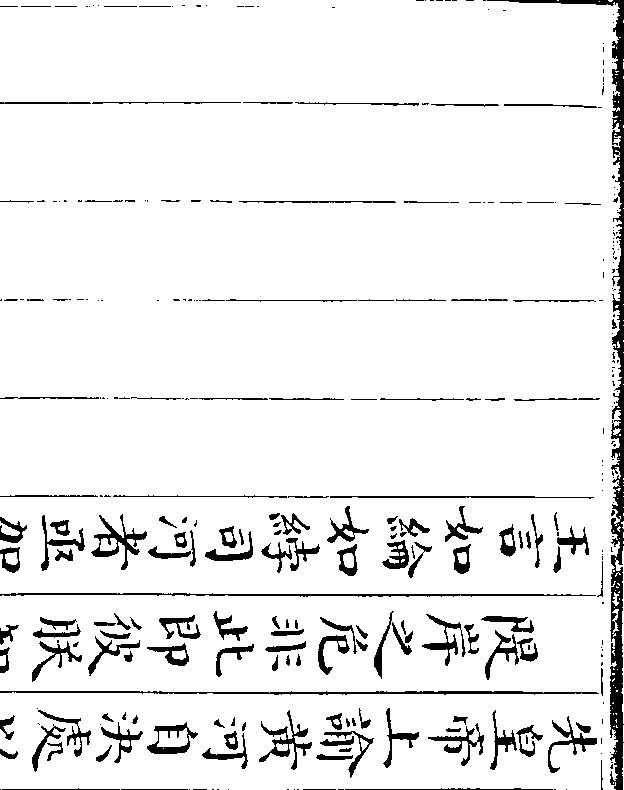 先皇帝上諭黃河自決處以
隄岸之危非此即彼朕知
王言如綸如綍司河者亟加